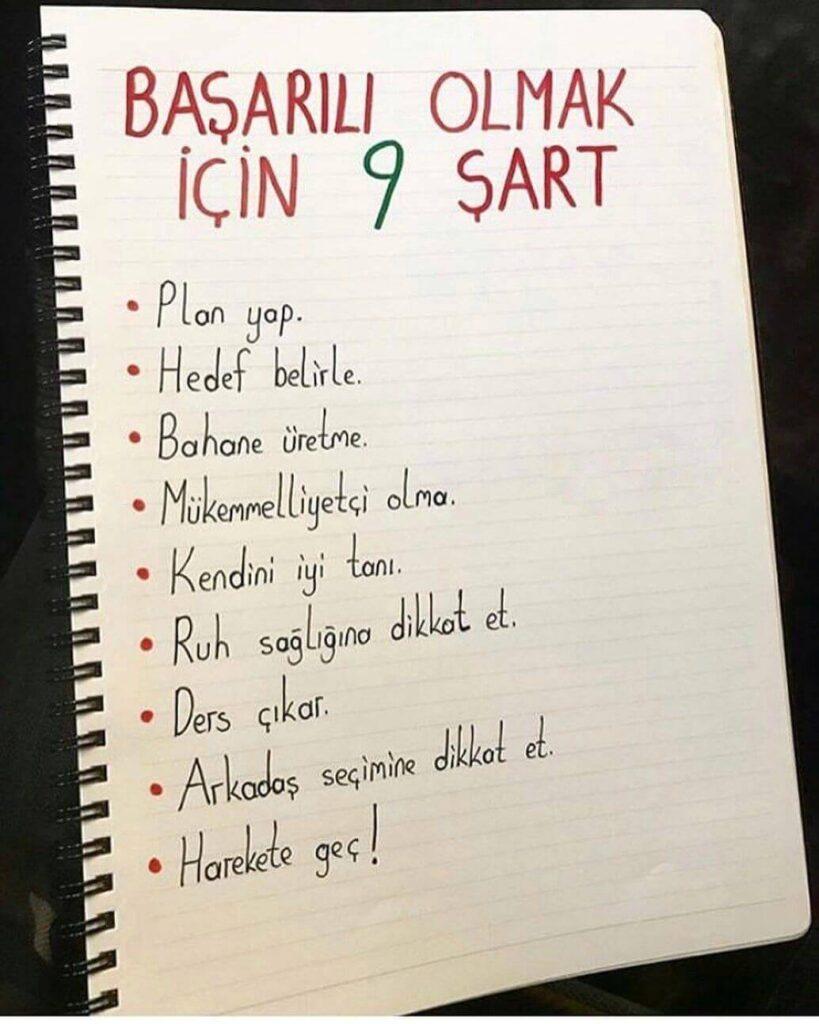 BAŞARILI OLMAK
İÇİN 9 ŞART
• Plan yap.
• Hedef belirle.
• Bahane üretme.
• Mükemmelliyetçi olma.
• Kendini iyi tanı.
• Ruh sağlığına dikkat et.
• Ders çıkar.
• Arkadaş seçimine dikkat et.
• Harekete geç!